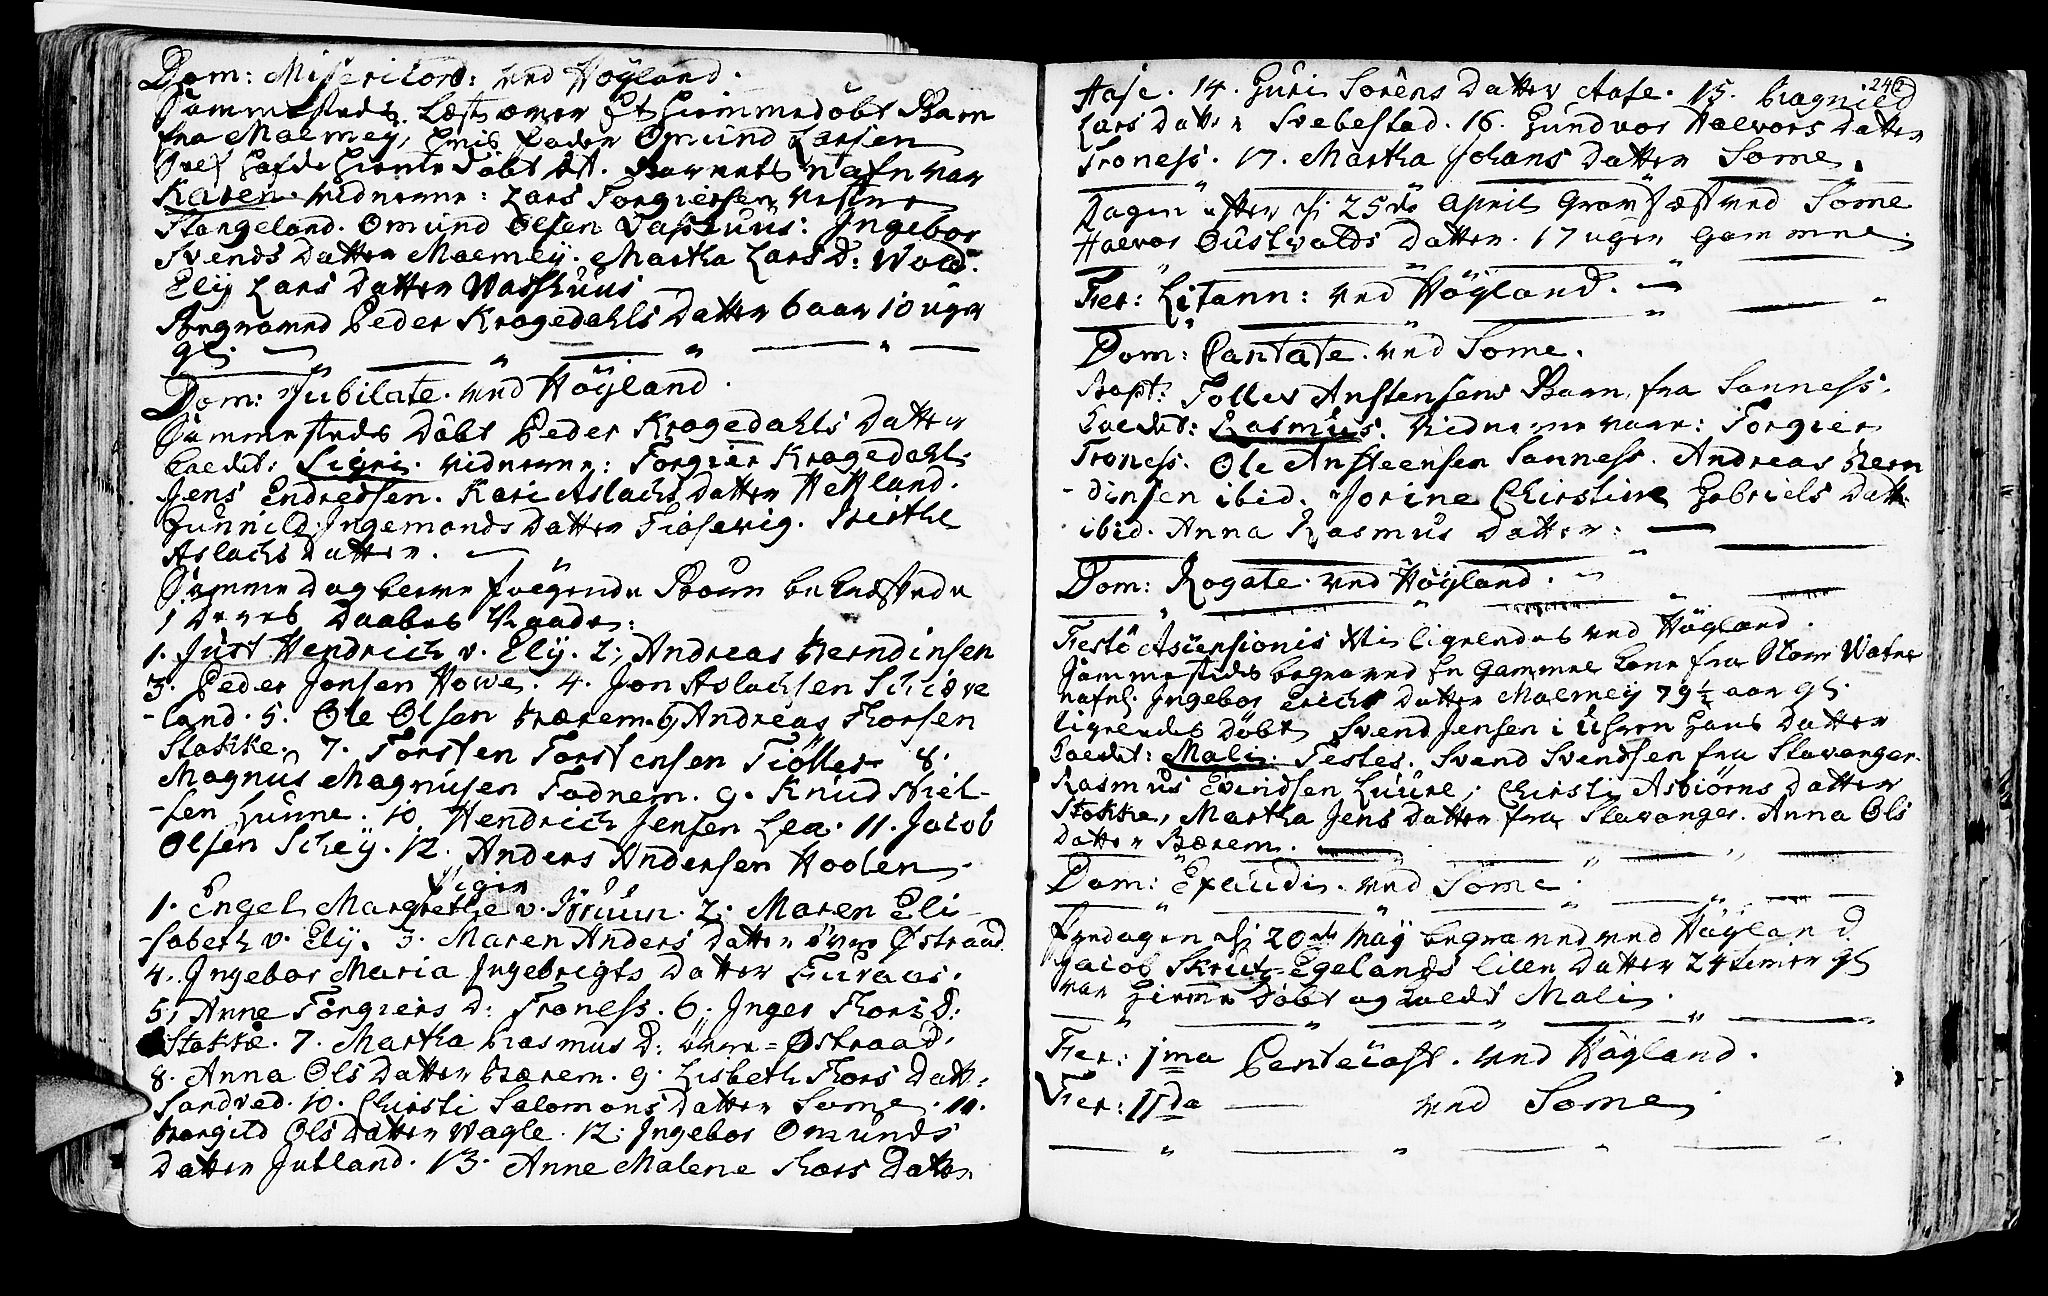 Dom: Misericord: ved Höyland.
Sammesteds Læst over Et Hiemmedöbt Barn
fra Malmey, hvis Fader Omund Larsen
Self hafde hiemme Döbt det. Barnets Nafn var
Karen. Vidnerne: Lars Torgiersen Vestre
Stangeland. Omund Olsen Vashuus: Ingebor
Svends Datter Malmey. Martha Lars D: Wold.
Elij Lars Datter Wasshuus
Begraved Peder Kragedahls Datter 6 aar 10 uger
gl.
Dom: Jubilate. ved Höyland.
Sammesteds Döbt Peder Kragedahls Datter
kaldet: Sigri. Vidnerne: Torgier Kragedahl
Jens Endresen. Kari Aslachs Datter Hetland.
Gunnild Ingemonds Datter Fiosevig. Birthe
Aslachs Datter.
Samme dag bleve fölgende Börn bekræftede
i Deres Daabes Naade:
1. Just Hendrich v. Elij. 2, Andreas Berndinsen
3. Peder Jonsen Howe. 4. Jon Aslachsen Schiæve
-land. 5. Ole Olsen Bærem. 6, Andreas Thorsen
Stokke. 7. Torsten Torstensen Tiölle. 8.
Magnus Magnusen Fodnem. 9. Knud Niel-
-sen Lunne. 10. Hendrich Jensen Lea. 11. Jacob
Olsen Schey. 12. Anders Andersen Hoolen.
Piger
1. Engel Margrethe v. Bruun. 2. Maren Eli-
-sabeth v. Elij. 3. Maren Anders Datter övre Østraad
4. Ingebor Maria Ingebrigts Datter Furaas.
5, Anne Torgiers D: Troness. 6. Inger Thors D:
Stokke. 7. Martha Rasmus D: övre = Østraad.
8. Anna Ols Datter Bærem. 9. Lisbeth Thors Datt:
Sandved. 10. Christi Salomons Datter Some. 11.
Borgild Ols Datter Vagle. 12. Ingebor Omunds
Datter Jutland. 13. Anne Malene Thors Datter
242
Aase. 14. Guri Sörens Datter Aase. 15. Ragnild
Lars Datter Svebestad. 16. Gundvor Halvors Datter
Troness. 17. Martha Johans Datter Some.
Dagen efter d: 25de April Graufæst ved Some
Halvor Gustvalds Datter. 17 uger Gammel.
Fer: Litann: ved Höyland.
Dom: Cantate. ved Some.
Bapt: Tolles Anstensens Barn fra Sanness.
kaldet: Rasmus. Vidnerne vare: Torgier
Troness. Ole Ansteensen Sanness. Andreas Bern
-dinsen ibid. Jorine Christine Gabriels Datt:
ibid. Anna Rasmus Datter:
Dom: Rogate. ved Höyland.
Festo Ascensionis Xti ligeledes ved Höyland.
Sammesteds begraved En Gammel kone fra Store Watne
nafnl. Ingebor Erichs Datter Malmey 79½ aar gl.
ligeledes Döbt Svend Jensen i Hans Datter
kaldet: Mali. Testes. Svend Svendsen fra Stavanger.
Rasmus Evindsen Luure, Christi Asbiörns Datter
Stokke, Martha Jens Datter fra Stavanger. Anna Ols
Datter Bærem.
Dom: Exaudi. ved Some.
Fredagen d: 20de Maÿ begraved ved Höyland
Jacob Skrut-Egelands liden Datter 24 timer gl
var hieme Döbt og kaldt Mali.
Fer: 1ma Pentecost. ved Höyland.
Fer: IIda ved Some.